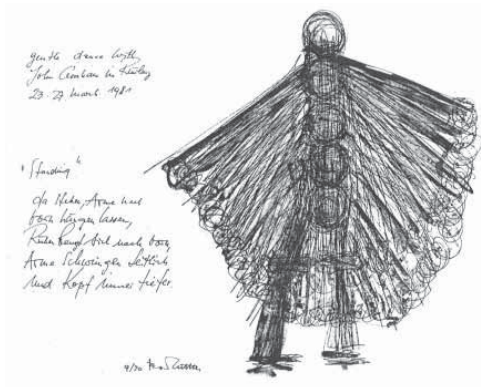 gentle dance with
John Graham in Freiburg
23-27 March 1981
"Standing"
da stehen, Arme nach
vorn hängen lassen,
Rücken beugt sich nach vorn,
Arme schwingen seitlich
und Kopf immer tiefer.
9/30